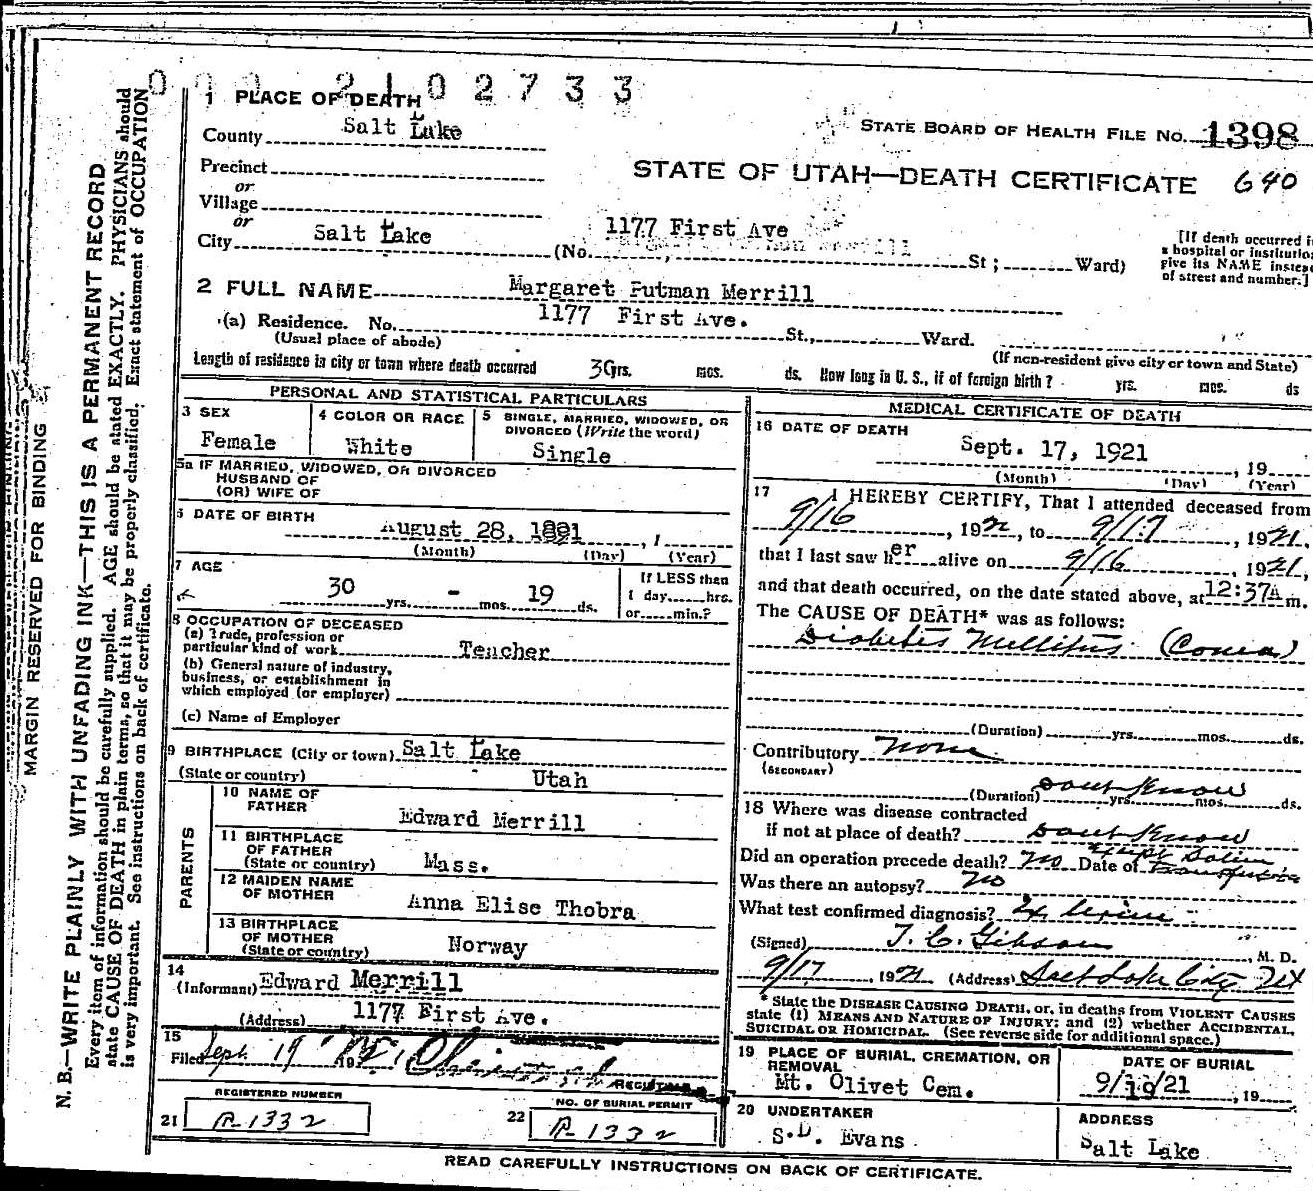 0 0 0 2 1 0 2 7 3 3
1 PLACE OF DEATH
County Salt Lake
STATE BOARD OF HEALTH FILE NO. 1398
Precinct
or
Village
or
STATE OF UTAH—DEATH CERTIFICATE 640
City Salt Lake (No. 1177 First Ave St; Ward)
[If death occurred in
a hospital or institution
give its NAME instead
of street and number.]
2 FULL NAME Margaret Putman Merrill
(a) Residence. No. 1177 First Ave. St., Ward.
(Usual place of abode)
(If non-resident give city or town and State)
Length of residence in city or town where death occurred 30 yrs. mos. ds. How long in U. S., if of foreign birth? yrs. mos. ds
PERSONAL AND STATISTICAL PARTICULARS
3 SEX
Female
4 COLOR OR RACE
White
5 SINGLE, MARRIED, WIDOWED, OR
DIVORCED (Write the word)
Single
5a IF MARRIED, WIDOWED, OR DIVORCED
HUSBAND OF
(OR) WIFE OF
6 DATE OF BIRTH
August 28, 1891, 1
(Month) (Day) (Year)
7 AGE
30 yrs. - mos. 19 ds.
If LESS than
1 day hrs.
or min.?
8 OCCUPATION OF DECEASED
(a) Trade, profession or
particular kind of work Teacher
(b) General nature of industry,
business, or establishment in
which employed (or employer)
(c) Name of Employer
9 BIRTHPLACE (City or town) Salt Lake
(State or country) Utah
PARENTS
10 NAME OF
FATHER Edward Merrill
11 BIRTHPLACE
OF FATHER
(State or country) Mass.
12 MAIDEN NAME
OF MOTHER Anna Elise Thobra
13 BIRTHPLACE
OF MOTHER
(State or country) Norway
14
(Informant) Edward Merrill
(Address) 1177 First Ave.
15
Filed Sept. 19
REGISTRAR
REGISTERED NUMBER
21 R-1332
NO. OF BURIAL PERMIT
22 R-1332
MEDICAL CERTIFICATE OF DEATH
16 DATE OF DEATH
Sept. 17, 1921, 19
(Month) (Day) (Year)
17 I HEREBY CERTIFY, That I attended deceased from
9/16, 1921, to 9/17, 1921,
that I last saw her alive on 9/16, 1921,
and that death occurred, on the date stated above, at 12:37A m.
The CAUSE OF DEATH* was as follows:
Diabetes Mellitus (Coma)
(Duration) yrs. mos. ds.
Contributory None
(SECONDARY)
(Duration) Dont Know yrs. mos. ds.
18 Where was disease contracted
if not at place of death? Dont Know
Did an operation precede death? No Date of Except Saline Transfusion
Was there an autopsy? No
What test confirmed diagnosis? Ex Urine
(Signed) T. C. Gibson, M. D.
9/17, 1921 (Address) Salt Lake City Ut
* State the DISEASE CAUSING DEATH, or, in deaths from VIOLENT CAUSES
state (1) MEANS AND NATURE OF INJURY; and (2) whether ACCIDENTAL,
SUICIDAL OR HOMICIDAL. (See reverse side for additional space.)
19 PLACE OF BURIAL, CREMATION, OR
REMOVAL
Mt. Olivet Cem.
DATE OF BURIAL
9/19/21, 19
20 UNDERTAKER
S.D. Evans
ADDRESS
Salt Lake
READ CAREFULLY INSTRUCTIONS ON BACK OF CERTIFICATE.
MARGIN RESERVED FOR BINDING
N. B.—WRITE PLAINLY WITH UNFADING INK—THIS IS A PERMANENT RECORD
Every item of information should be carefully supplied. AGE should be stated EXACTLY. PHYSICIANS should
state CAUSE OF DEATH in plain terms, so that it may be properly classified. Exact statement of OCCUPATION
is very important. See instructions on back of certificate.